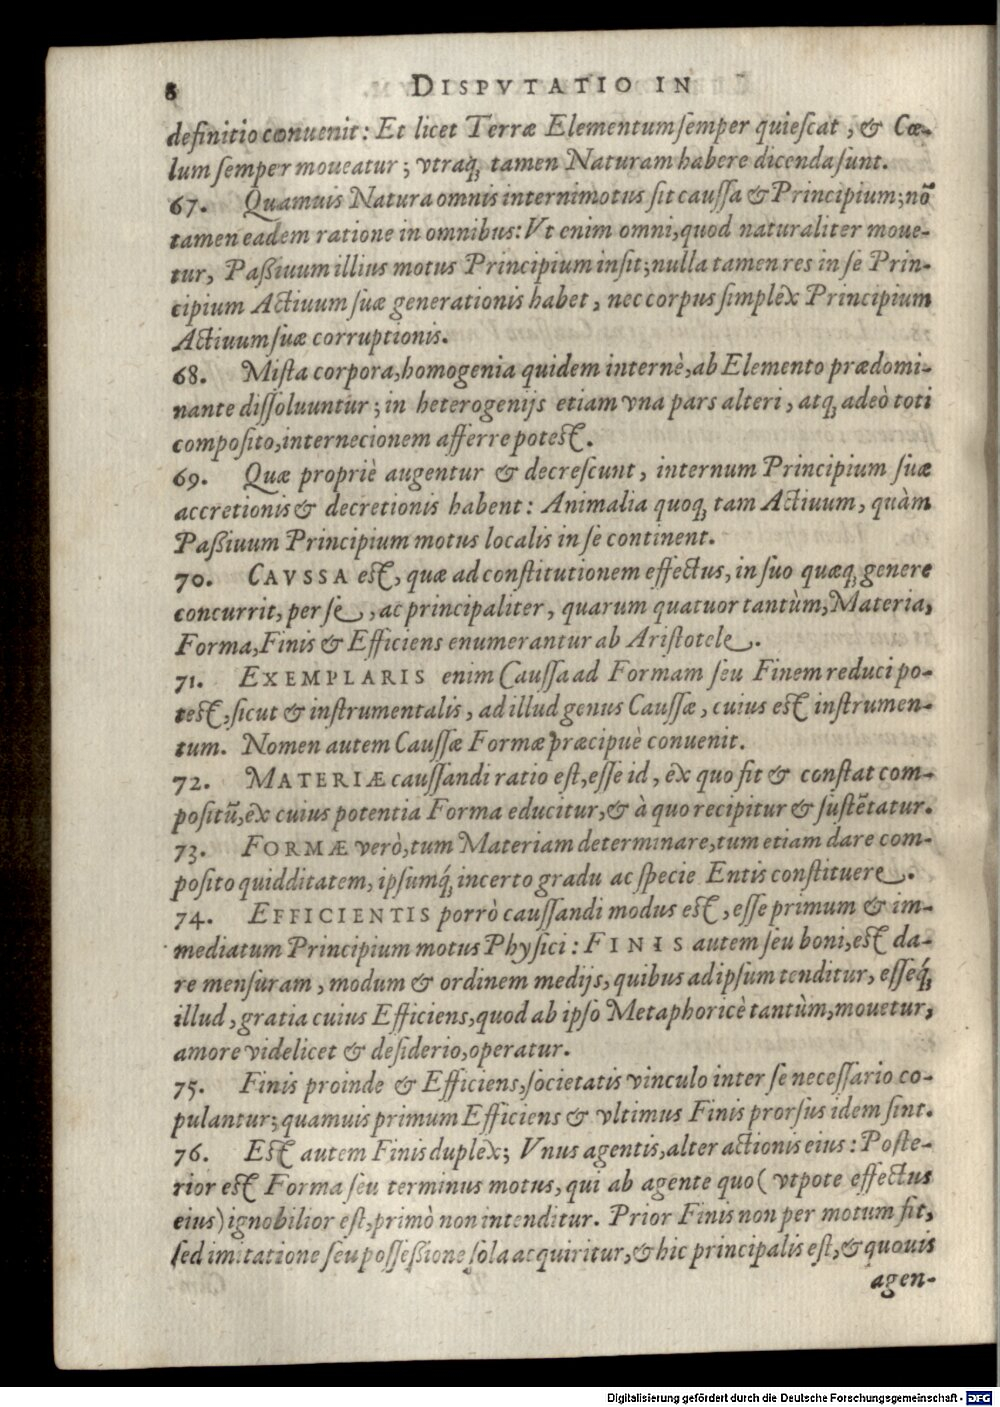 8 DISPVTATIO IN
definitio conuenit: Et licet Terræ Elementum ſemper quieſcat, & Cœ-
lum ſemper moueatur; vtraq; tamen Naturam habere dicenda ſunt.
67. Quamuis Natura omnis interni motus ſit cauſſa & Principium; nõ
tamen eadem ratione in omnibus: Vt enim omni, quod naturaliter moue-
tur, Paßiuum illius motus Principium inſit; nulla tamen res in ſe Prin-
cipium Actiuum ſuæ generationis habet, nec corpus ſimplex Principium
Actiuum ſuæ corruptionis.
68. Miſta corpora, homogenia quidem internè, ab Elemento prædomi-
nante diſſoluuntur; in heterogenijs etiam vna pars alteri, atq; adeò toti
compoſito, internecionem afferre poteſt.
69. Quæ propriè augentur & decreſcunt, internum Principium ſuæ
accretionis & decretionis habent: Animalia quoq; tam Actiuum, quàm
Paßiuum Principium motus localis in ſe continent.
70. CAVSSA eſt, quæ ad conſtitutionem effectus, in ſuo quæq; genere
concurrit, per ſe, ac principaliter, quarum quatuor tantùm, Materia,
Forma, Finis & Efficiens enumerantur ab Ariſtotele.
71. EXEMPLARIS enim Cauſſa ad Formam ſeu Finem reduci po-
teſt, ſicut & inſtrumentalis, ad illud genus Cauſſæ, cuius eſt inſtrumen-
tum. Nomen autem Cauſſæ Formæ præcipuè conuenit.
72. MATERIÆ cauſſandi ratio eſt, eſſe id, ex quo fit & conſtat com-
poſitũ, ex cuius potentia Forma educitur, & à quo recipitur & ſuſtẽtatur.
73. FORMÆ verò, tum Materiam determinare, tum etiam dare com-
poſito quidditatem, ipſumq́; in certo gradu ac ſpecie Entis conſtituere.
74. EFFICIENTIS porrò cauſſandi modus eſt, eſſe primum & im-
mediatum Principium motus Phyſici: FINIS autem ſeu boni, eſt da-
re menſuram, modum & ordinem medijs, quibus ad ipſum tenditur, eſſeq́;
illud, gratia cuius Efficiens, quod ab ipſo Metaphoricè tantùm, mouetur,
amore videlicet & deſiderio, operatur.
75. Finis proinde & Efficiens, ſocietatis vinculo inter ſe neceſſario co-
pulantur; quamuis primum Efficiens & vltimus Finis prorſus idem ſint.
76. Eſt autem Finis duplex; Vnus agentis, alter actionis eius: Poſte-
rior eſt Forma ſeu terminus motus, qui ab agente quo (vtpote effectus
eius) ignobilior eſt, primò non intenditur. Prior Finis non per motum fit,
ſed imitatione ſeu poſſeßione ſola acquiritur, & hic principalis eſt, & quouis
agen-
Digitalisierung gefördert durch die Deutsche Forschungsgemeinschaft - DFG